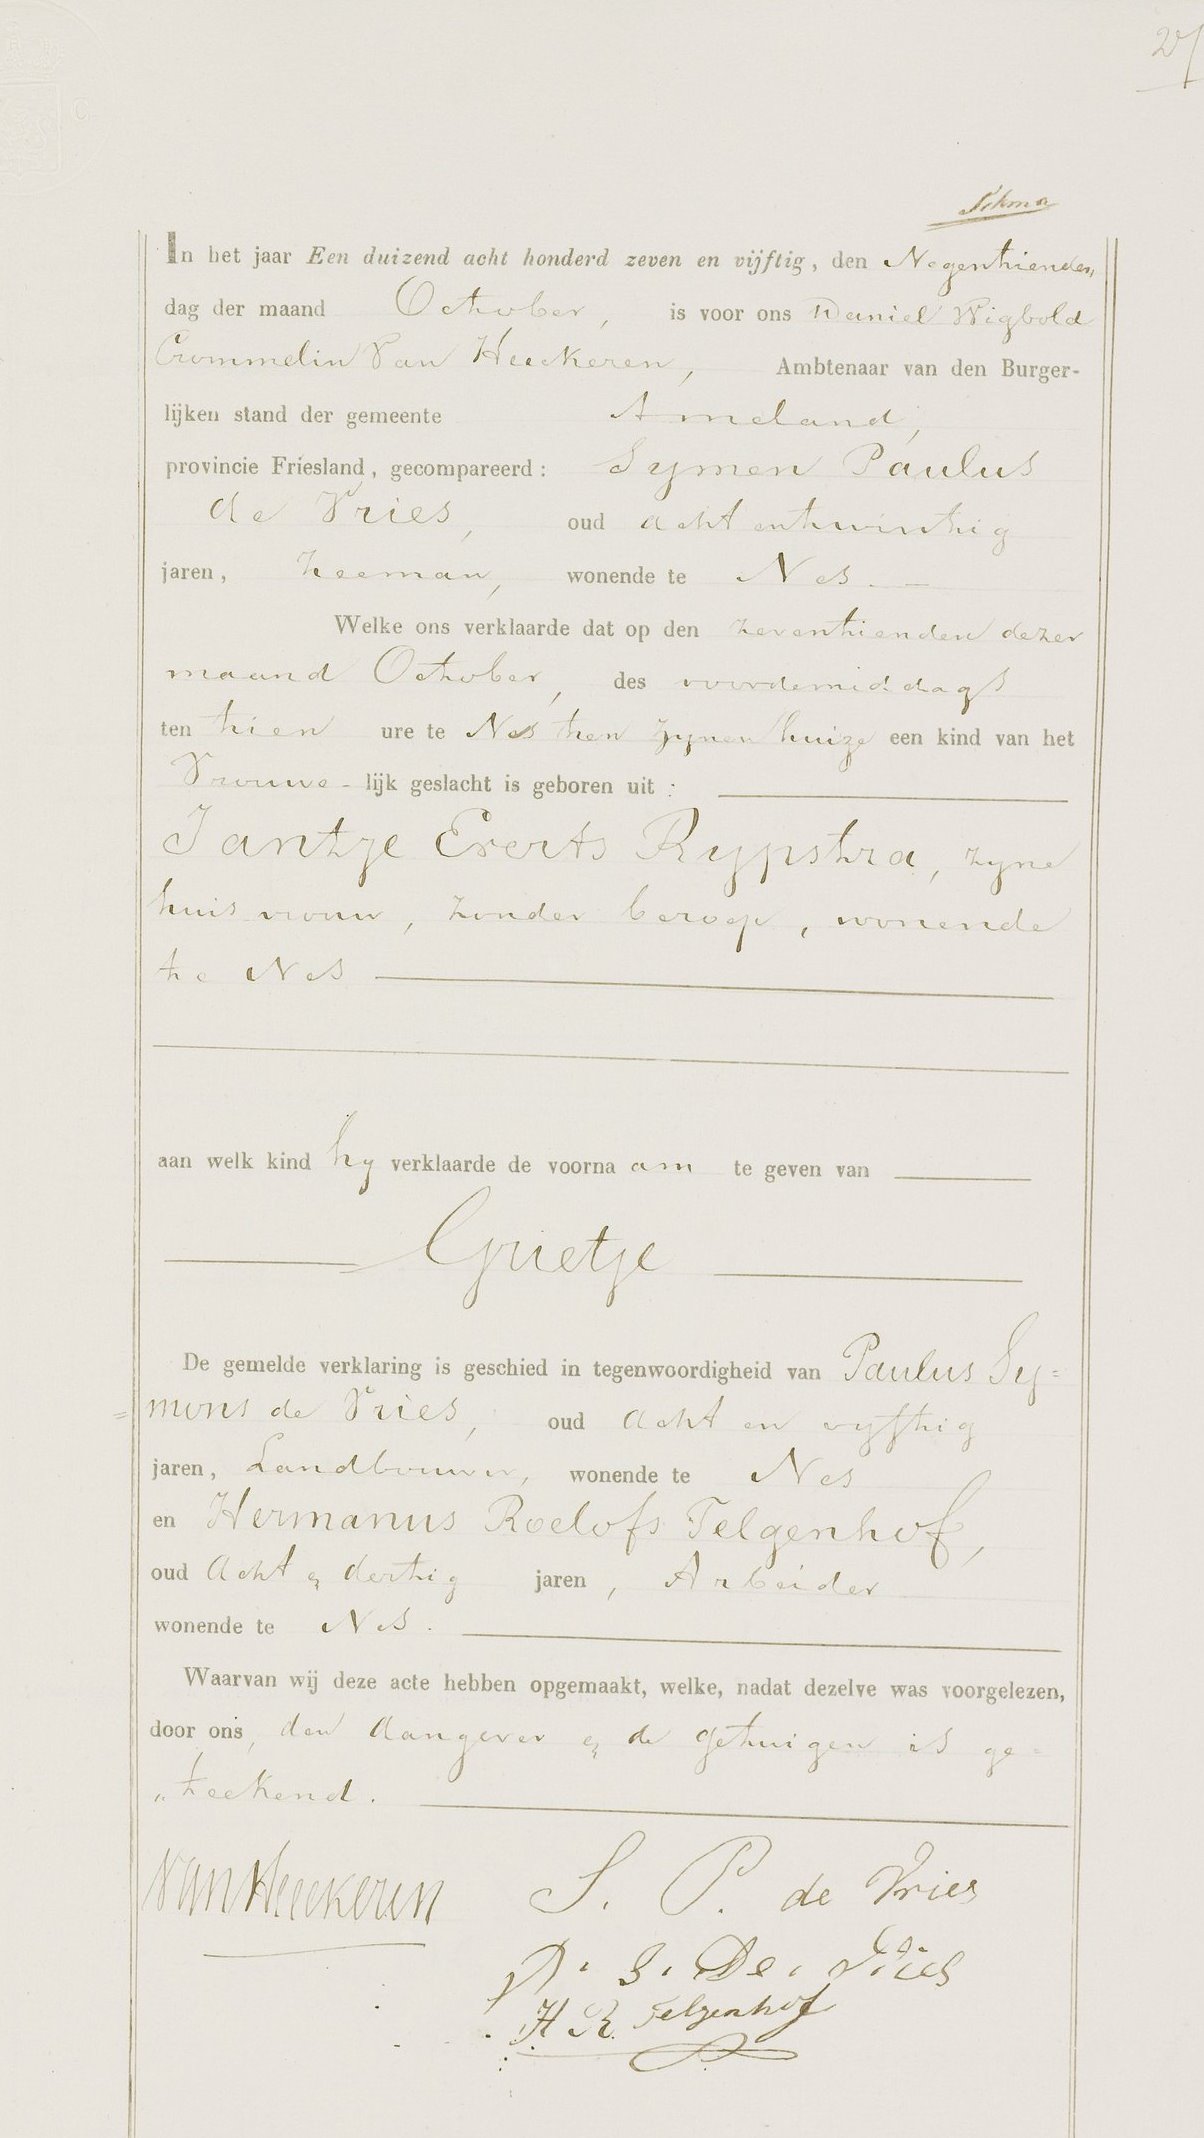 27
In het jaar Een duizend acht honderd zeven en vijftig, den Negenthienden
dag der maand October, is voor ons Daniel Wigbold
Crommelin Van Heeckeren, Ambtenaar van den Burger-
lijken stand der gemeente Ameland,
provincie Friesland, gecompareerd: Symen Paulus
de Vries, oud acht entwinthig
jaren, Zeeman, wonende te Nes. —
Welke ons verklaarde dat op den zeventhienden dezer
maand October, des voordemiddags
ten thien ure te Nes then zynen huize een kind van het
Vrouwe-lijk geslacht is geboren uit:
Jantje Everts Rypstra, zyne
huisvrouw, zonder beroep, wonende
te Nes
aan welk kind hy verklaarde de voornaam te geven van
Grietje
De gemelde verklaring is geschied in tegenwoordigheid van Paulus Sy=
=mons de Vries, oud acht en vyfthig
jaren, Landbouwer, wonende te Nes
en Hermanus Roelofs Telgenhof,
oud Acht & derthig jaren, Arbeider
wonende te Nes.
Waarvan wij deze acte hebben opgemaakt, welke, nadat dezelve was voorgelezen,
door ons, den Aangever & de gethuigen is ge=
„teekend.
Van Heeckeren S. P. de Vries
P. S. De. Vries
H R. Telgenhof